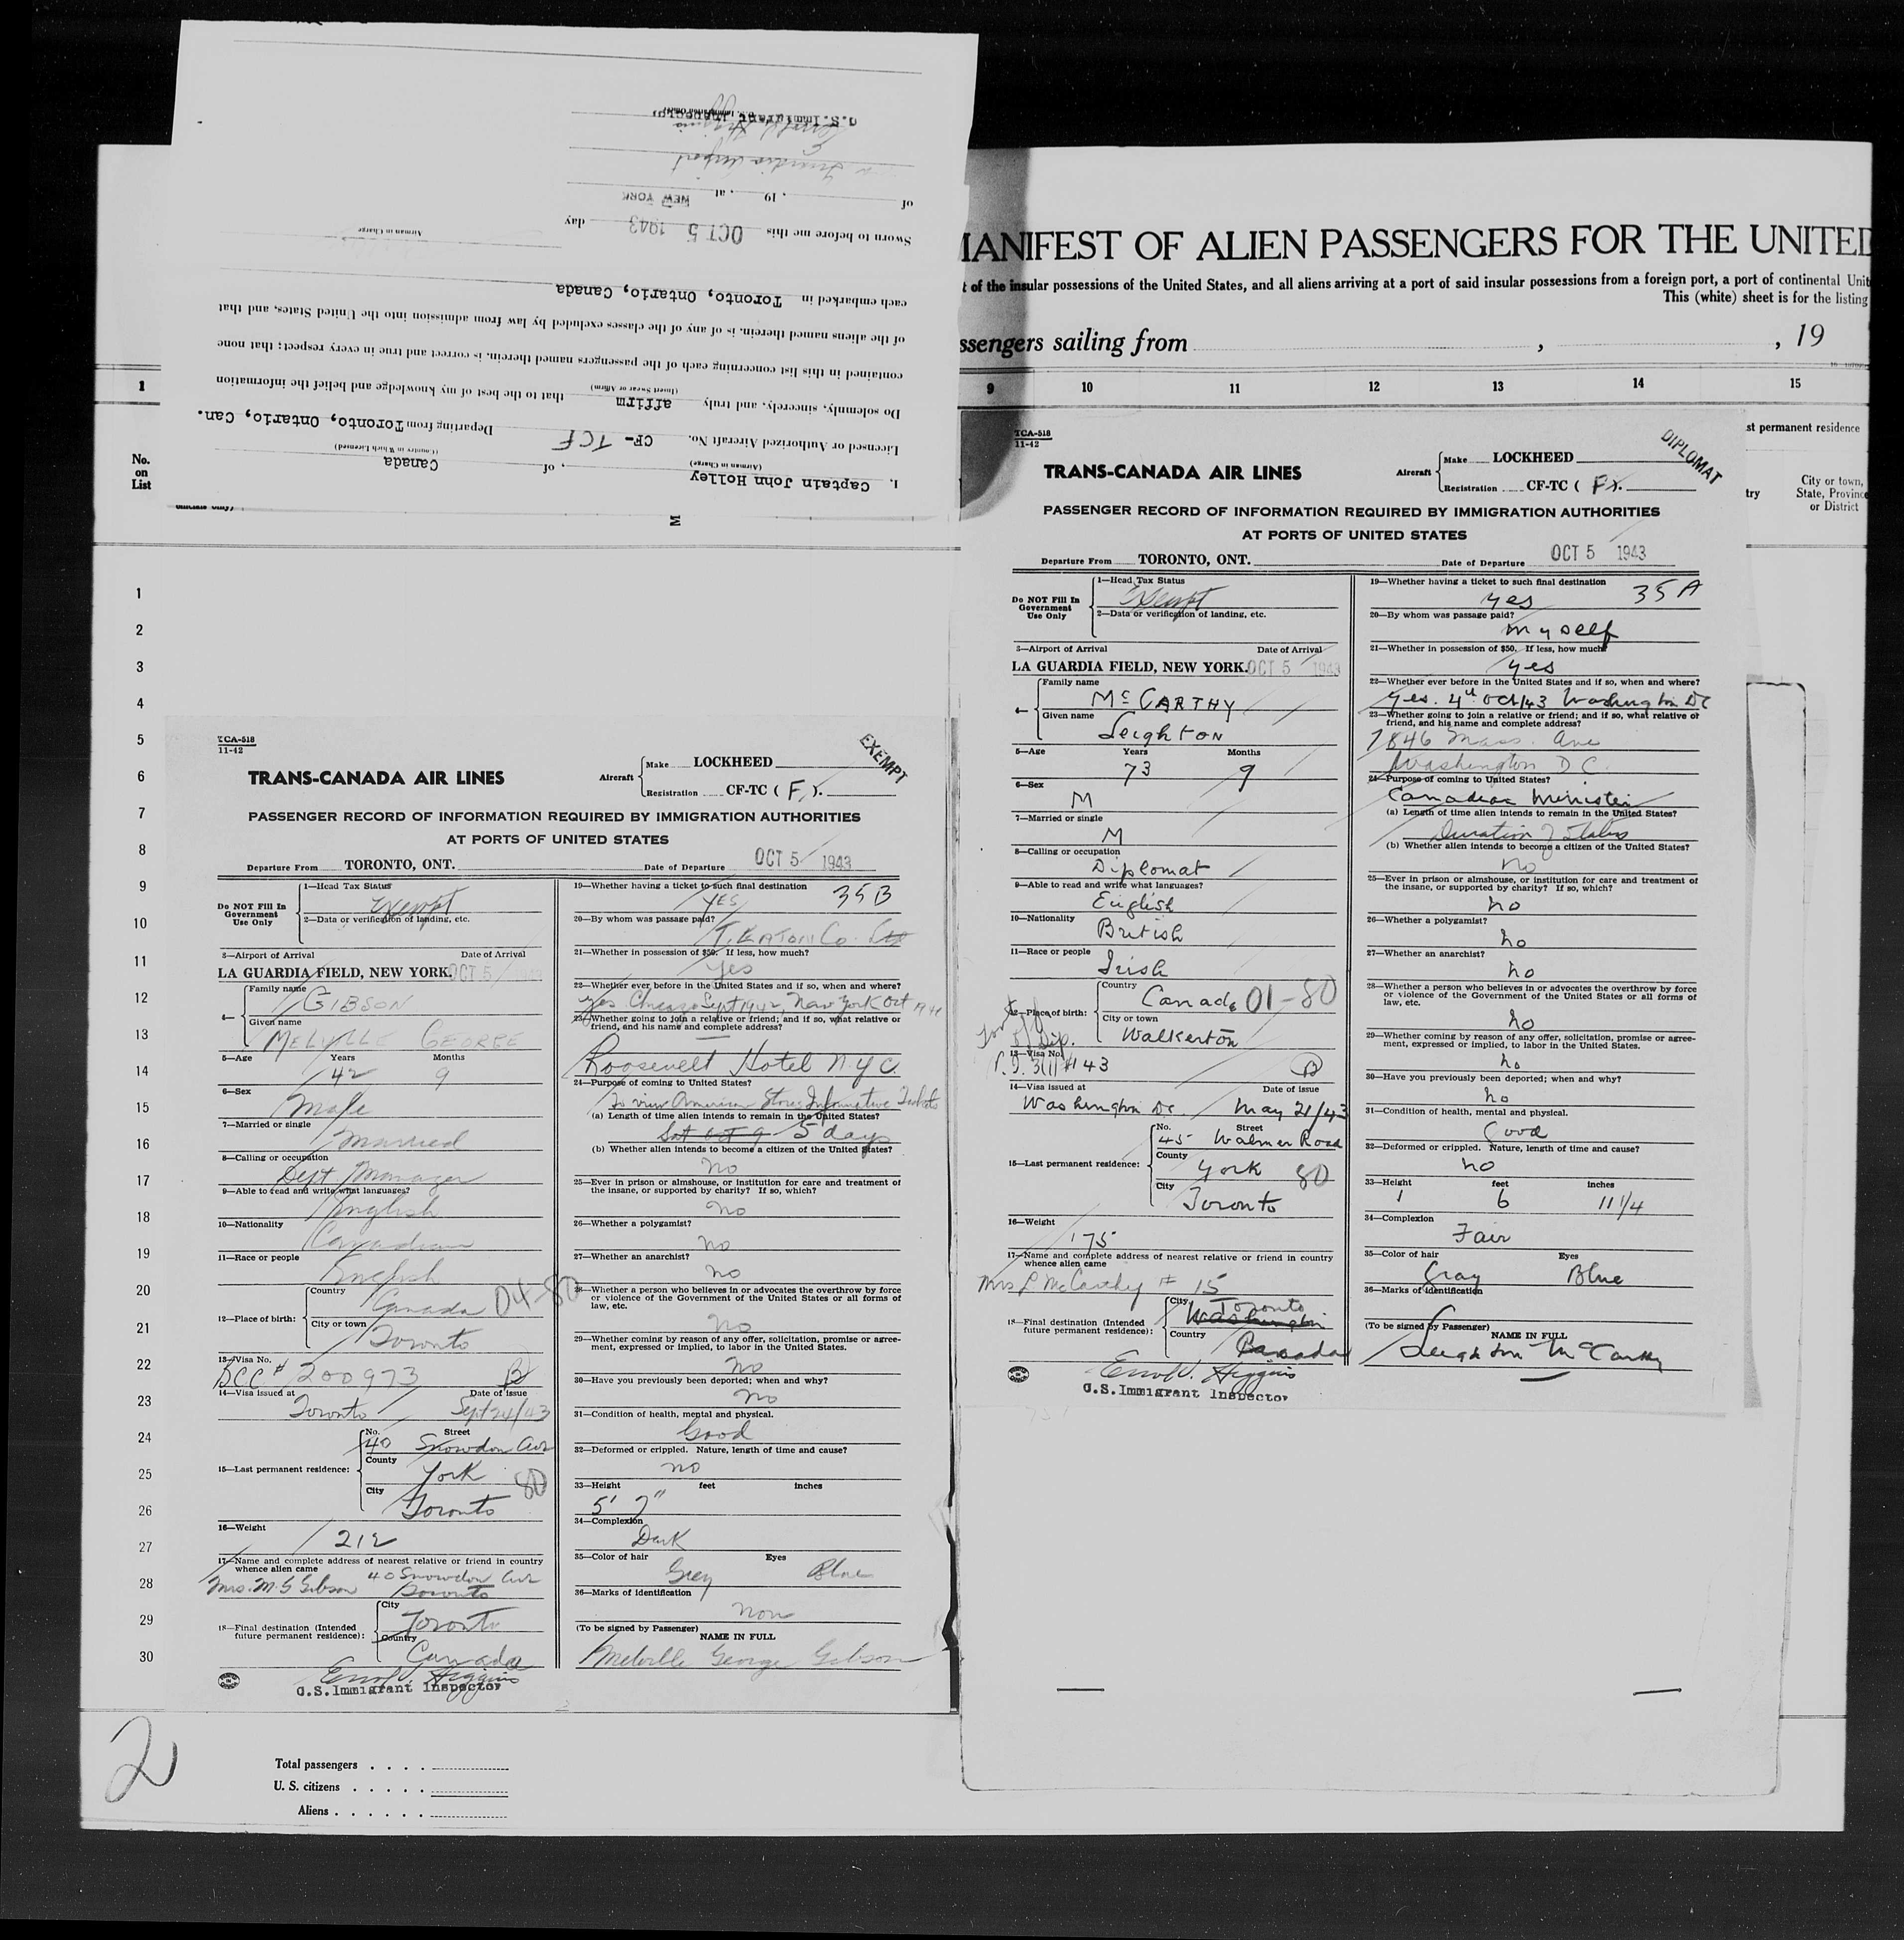 I, Captain John Holley, of Canada
(Airman in Charge) (Country in Which Licensed)
Licensed or Authorized Aircraft No. CF- TCF Departing from Toronto, Ontario, Can.
Do solemnly, sincerely, and truly affirm that to the best of my knowledge and belief the information
(Insert Swear or Affirm)
contained in this list concerning each of the passengers named therein, is correct and true in every respect; that none
of the aliens named therein, is of any of the classes excluded by law from admission into the United States, and that
each embarked in Toronto, Ontario, Canada
Airman in Charge
Sworn to before me this OCT 5 1943 day
of , 19 , at NEW YORK
U.S. Immigrant Inspector
MANIFEST OF ALIEN PASSENGERS FOR THE UNITED
t of the insular possessions of the United States, and all aliens arriving at a port of said insular possessions from a foreign port, a port of continental Unit
This (white) sheet is for the listing
ssengers sailing from , , 19
1
9 10 11 12 13 14 15
No.
on
List
st permanent residence
try
City or town,
State, Province
or District
1
2
3
4
5
6
7
8
9
10
11
12
13
14
15
16
17
18
19
20
21
22
23
24
25
26
27
28
29
30
TCA-518
11-42
EXEMPT
TRANS-CANADA AIR LINES
Aircraft Make LOCKHEED
Registration CF-TC ( F ).
PASSENGER RECORD OF INFORMATION REQUIRED BY IMMIGRATION AUTHORITIES
AT PORTS OF UNITED STATES
Departure From TORONTO, ONT. Date of Departure OCT 5 1943
Do NOT Fill In
Government
Use Only
1—Head Tax Status
Exempt
2—Data or verification of landing, etc.
3—Airport of Arrival Date of Arrival
LA GUARDIA FIELD, NEW YORK. OCT 5 1943
4— Family name
GIBSON
Given name
MELVILLE GEORGE
5—Age Years Months
42 9
6—Sex
Male
7—Married or single
Married
8—Calling or occupation
Dept Manager
9—Able to read and write what languages?
English
10—Nationality
Canadian
11—Race or people
English
12—Place of birth: Country
Canada 04-80
City or town
Toronto
13—Visa No.
BCC # 200973 B
14—Visa issued at Date of issue
Toronto Sept 24/43
15—Last permanent residence: No. Street
40 Snowdon Ave
County
York 80
City
Toronto
16—Weight
212
17—Name and complete address of nearest relative or friend in country
whence alien came
Mrs. M. G Gibson 40 Snowdon Ave
Toronto
18—Final destination (Intended
future permanent residence): City
Toronto
Country
Canada
Errol V. Higgins
U.S. Immigrant Inspector
19—Whether having a ticket to such final destination
YES 35B
20—By whom was passage paid?
T. EATON Co. Ltd
21—Whether in possession of $50. If less, how much?
Yes
22—Whether ever before in the United States and if so, when and where?
yes Chicago Sept 1942, New York Oct
23—Whether going to join a relative or friend; and if so, what relative or
friend, and his name and complete address?
Roosevelt Hotel N.Y.C.
24—Purpose of coming to United States?
To view American Stores Informative
(a) Length of time alien intends to remain in the United States?
Sat Oct 9 5 days
(b) Whether alien intends to become a citizen of the United States?
No
25—Ever in prison or almshouse, or institution for care and treatment of
the insane, or supported by charity? If so, which?
No
26—Whether a polygamist?
No
27—Whether an anarchist?
No
28—Whether a person who believes in or advocates the overthrow by force
or violence of the Government of the United States or all forms of
law, etc.
No
29—Whether coming by reason of any offer, solicitation, promise or agree-
ment, expressed or implied, to labor in the United States.
No
30—Have you previously been deported; when and why?
No
31—Condition of health, mental and physical.
Good
32—Deformed or crippled. Nature, length of time and cause?
no
33—Height feet inches
5' 7"
34—Complexion
Dark
35—Color of hair Eyes
Grey Blue
36—Marks of identification
non
(To be signed by Passenger)
NAME IN FULL
Melville George Gibson
TCA-518
11-42
DIPLOMAT
TRANS-CANADA AIR LINES
Aircraft Make LOCKHEED
Registration CF-TC ( F ).
PASSENGER RECORD OF INFORMATION REQUIRED BY IMMIGRATION AUTHORITIES
AT PORTS OF UNITED STATES
Departure From TORONTO, ONT. Date of Departure OCT 5 1943
Do NOT Fill In
Government
Use Only
1—Head Tax Status
Exempt
2—Data or verification of landing, etc.
3—Airport of Arrival Date of Arrival
LA GUARDIA FIELD, NEW YORK. OCT 5 1943
4— Family name
McCARTHY
Given name
Leighton
5—Age Years Months
73 9
6—Sex
M
7—Married or single
M
8—Calling or occupation
Diplomat
9—Able to read and write what languages?
English
10—Nationality
British
11—Race or people
Irish
12—Place of birth: Country
Canada 01-80
City or town
Walkerton
13—Visa No.
B
14—Visa issued at Date of issue
Washington DC. May 21/43
15—Last permanent residence: No. Street
45 Walmer Road
County
York 80
City
Toronto
16—Weight
175
17—Name and complete address of nearest relative or friend in country
whence alien came
Mrs L McCarthy # 15
18—Final destination (Intended
future permanent residence): City
Toronto
Washington
Country
Canada
Errol V. Higgins
U.S. Immigrant Inspector
19—Whether having a ticket to such final destination
yes 35A
20—By whom was passage paid?
myself
21—Whether in possession of $50. If less, how much?
yes
22—Whether ever before in the United States and if so, when and where?
yes. 4th Oct/43 Washington DC
23—Whether going to join a relative or friend; and if so, what relative or
friend, and his name and complete address?
1846 Mass. Ave
Washington D C.
24—Purpose of coming to United States?
Canadian Minister
(a) Length of time alien intends to remain in the United States?
Duration of Status
(b) Whether alien intends to become a citizen of the United States?
No
25—Ever in prison or almshouse, or institution for care and treatment of
the insane, or supported by charity? If so, which?
no
26—Whether a polygamist?
no
27—Whether an anarchist?
no
28—Whether a person who believes in or advocates the overthrow by force
or violence of the Government of the United States or all forms of
law, etc.
no
29—Whether coming by reason of any offer, solicitation, promise or agree-
ment, expressed or implied, to labor in the United States.
no
30—Have you previously been deported; when and why?
no
31—Condition of health, mental and physical.
Good
32—Deformed or crippled. Nature, length of time and cause?
no
33—Height feet inches
6 11 1/4
34—Complexion
Fair
35—Color of hair Eyes
Gray Blue
36—Marks of identification
(To be signed by Passenger)
NAME IN FULL
Leighton McCarthy
2
Total passengers
U. S. citizens
Aliens